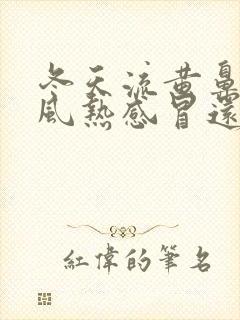 冬天流黄鼻
風熱感冒還
紅偉的筆名